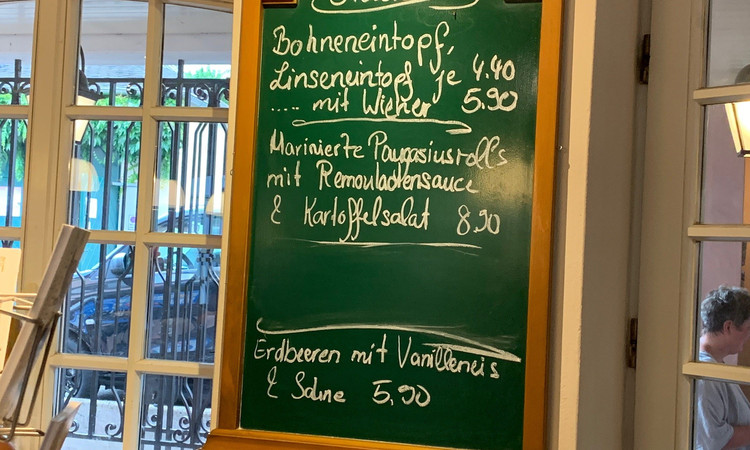 Bohneneintopf,
Linseneintopf je 4.40
..... mit Wiener 5.90
Marinierte Pangasiusrolls
mit Remouladensauce
& Kartoffelsalat 8.90
Erdbeeren mit Vanilleneis
& Sahne 5,90